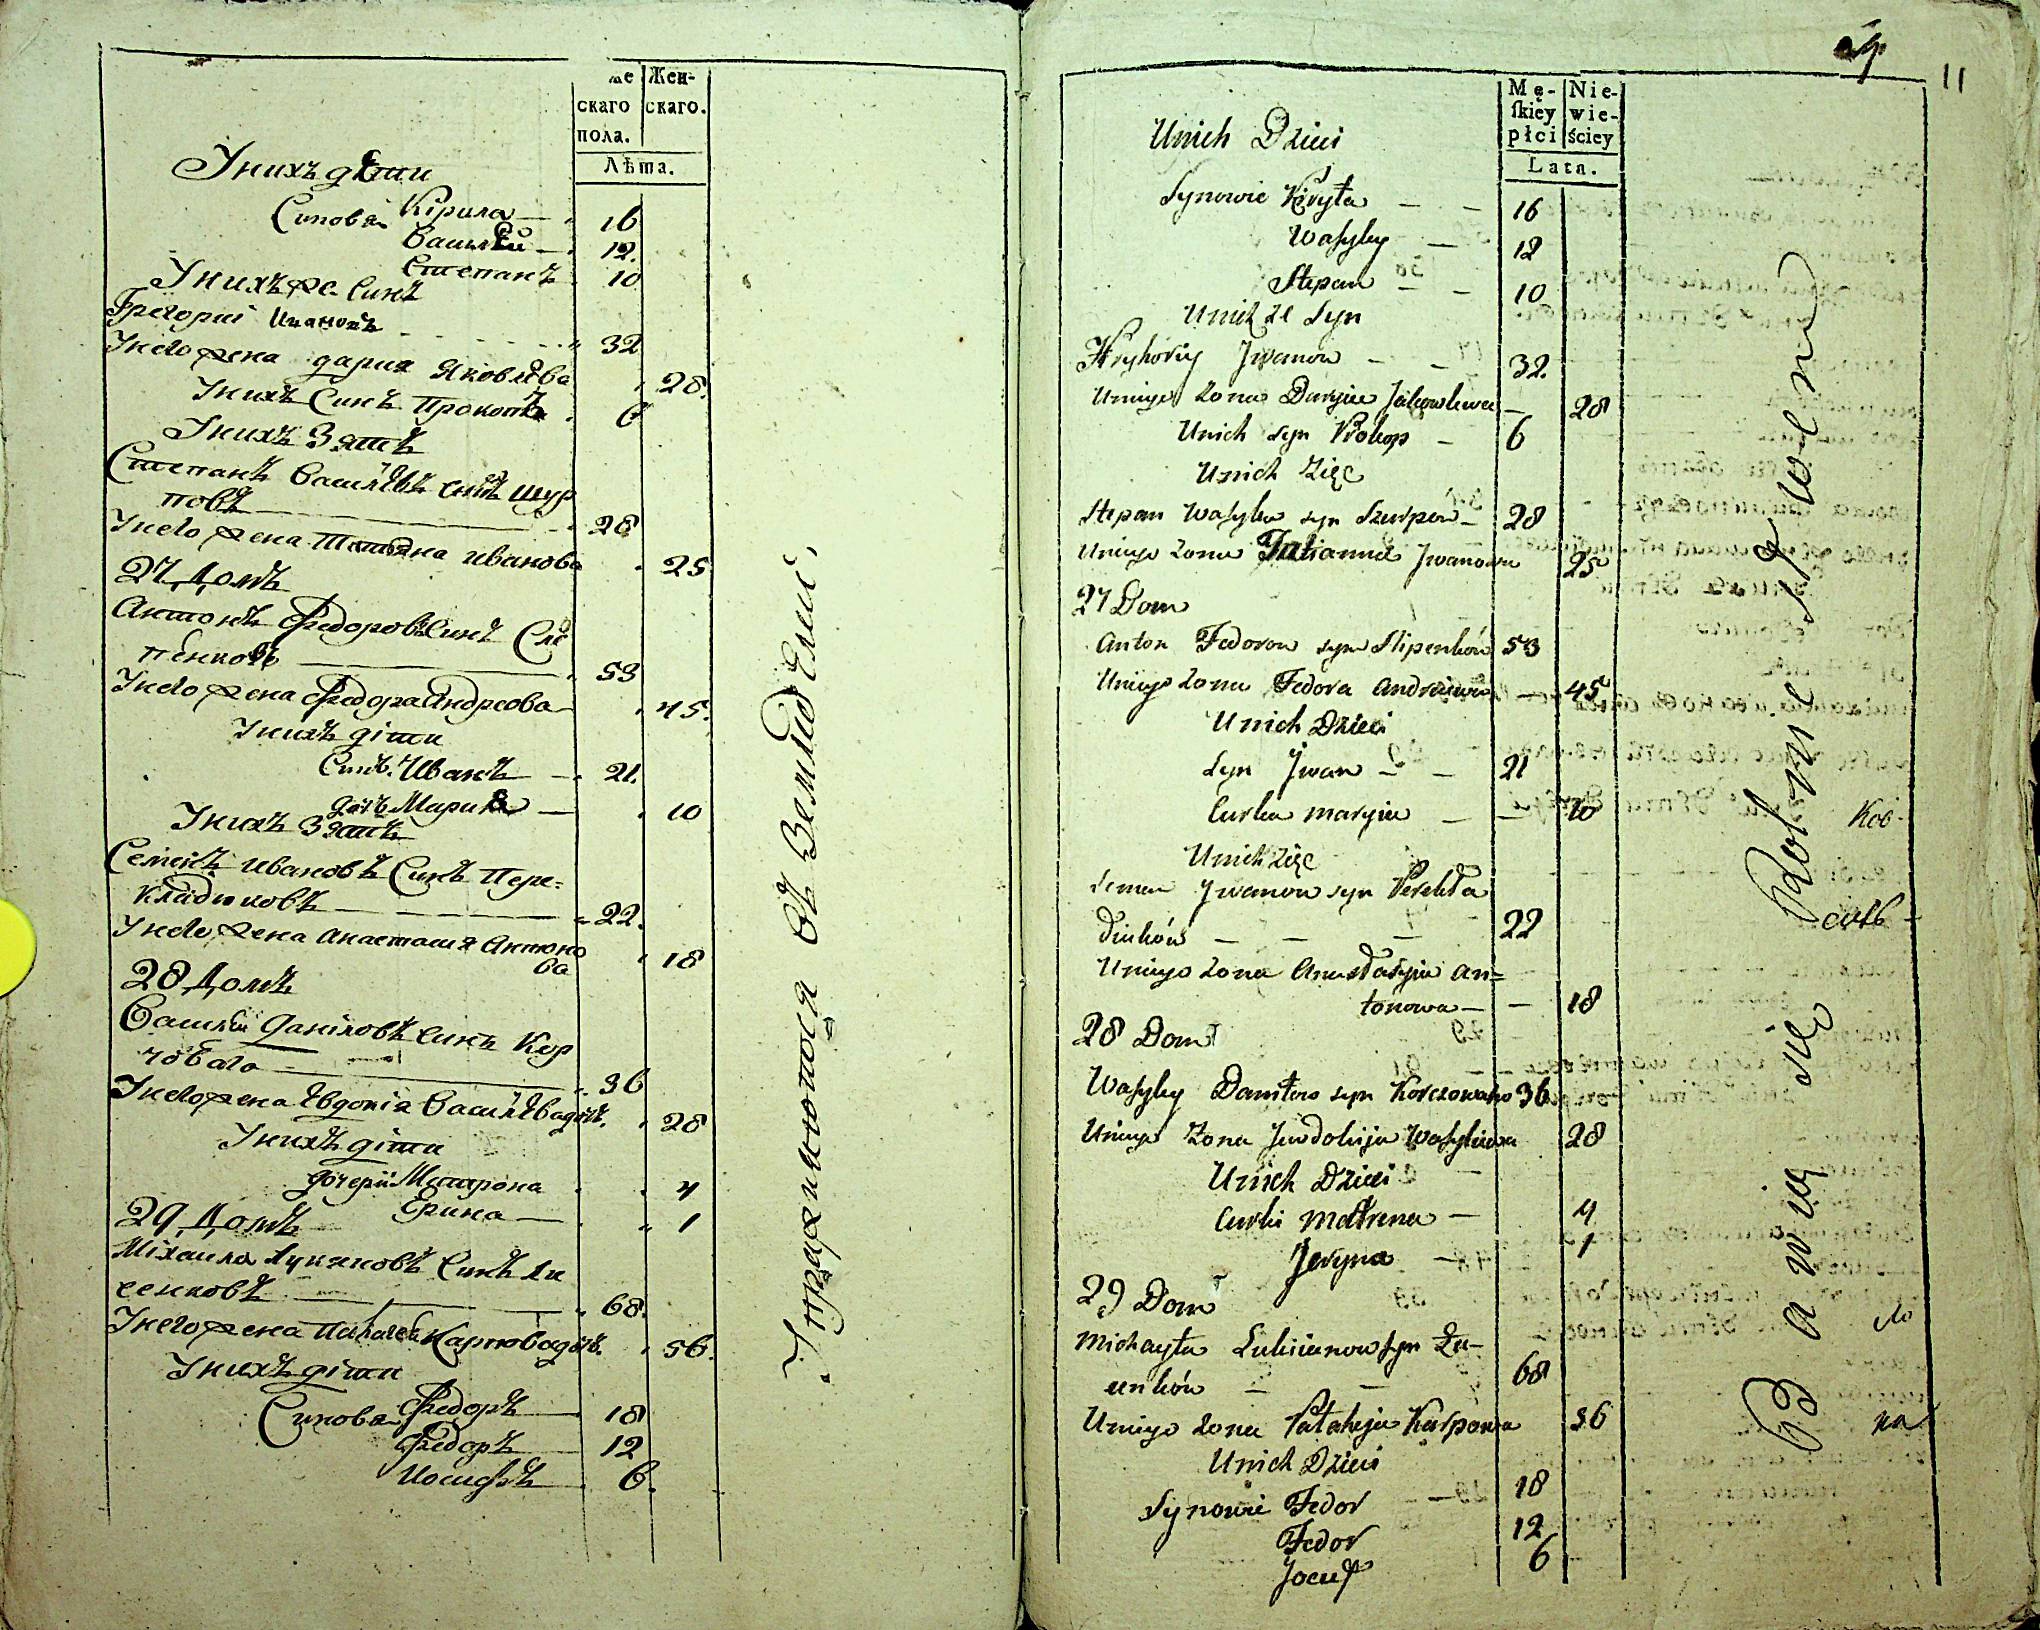 же Жен-
скаго скаго.
пола.
Лѣта.
Унихъ дѣти
Синовя Кірила 16
Василѣй 12.
Степанъ 10
Унихъ же Синъ
Григорий Ивановъ 32
Унего жена дария Яковлѣва 28.
Унихъ Синъ Прокопъ 6
Унихъ Зятъ
Степанъ Василѣвъ Синъ Шур
повъ 28
Унего жена Татяна иванова 25
27 Домъ
Антонъ Федоровъ Синъ Слѣ
пенковъ 53
Унего жена Федора Андреова 45.
Унихъ діти
Синъ Иванъ 21.
дочъ Мария 10
Унихъ Зятъ
Семенъ Ивановъ Синъ Пере=
кладюковъ 22.
Унего жена Анастасия Антоно
ва 18
28 Домъ
Василѣй Даніловъ Синъ Кор
човаго 36
Унего жена Евдокія Василѣва дочъ. 28
Унихъ діти
дочери Матрона 4
Ерина 1
29 Домъ
Міхаила Лукяновъ Синъ Ли
сенковъ 68.
Унего жена Палагея Карпова дочъ. 56.
Унихъ діти
Синовя Федоръ 18
Федоръ 12
Иосифъ 6.
Упражняются въ Земледелии.
11
Mę- Nie-
ſkiey wie-
płci ściey
Lata.
Unich Dzieci
Synowie Kiryła 16
Wasyley 12
Stepan 10
Unich ze Syn
Hryhoriy Jwanow 32.
Uniego Zona Daryia Jakowlewa 28
Unich syn Prokop 6
Unich Zięc
Stepan Wasylew syn Szurpow 28
Uniego Zona Tatianna Jwanowa 25
27 Dom
Anton Fedorow syn Slipenków 53
Uniego Zona Fedora Andreiewa 45
Unich Dzieci
Syn Jwan 21
Curka Maryia 10
Unich Zięc
Semen Jwanow syn Perekła
diuków 22
Uniego Zona Anastasyia An=
tonowa 18
28 Dom
Wasyley Daniłow syn Korczowaho 36
Uniego Zona Jewdokija Wasylewa 28
Unich Dzieci
Curki Matrena 4
Jeryna 1
29 Dom
Michayła Lukianow syn
68
Uniego Zona Pałaheja Karpowa 56
Unich Dzieci
Synowie Fedor 18
Fedor 12
Jocuf 6
Bawią się Rolnictwem